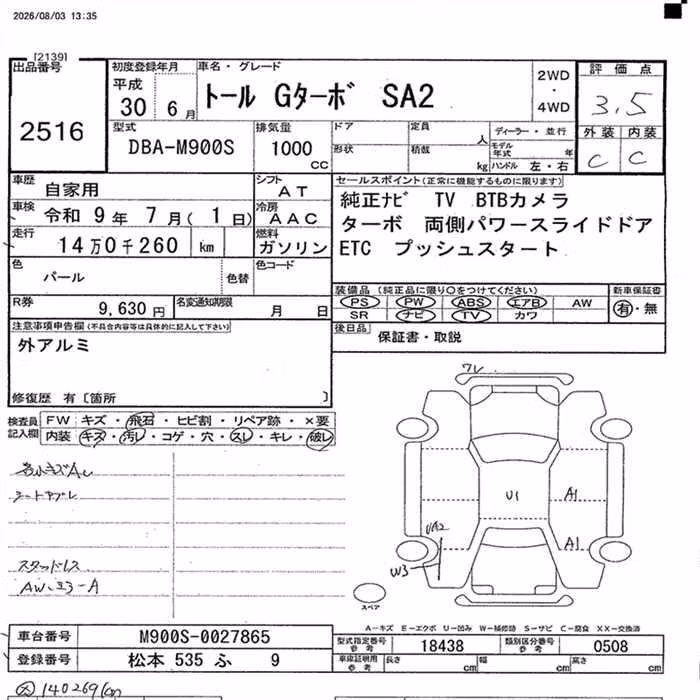 2026/08/03 13:35
[2139]
出品番号
2516
初度登録年月
平成
30 6月
車名・グレード
トール Gターボ SA2
2WD
・
4WD
評価点
3.5
外装 内装
C C
型式
DBA-M900S
排気量
1000
CC
ドア
形状
定員
人
積載
kg
ディーラー・並行
モデル
年式 年
ハンドル 左・右
車歴
自家用
シフト
AT
車検
令和 9年 7月( 1日)
冷房
AAC
走行
14万0千260 km
燃料
ガソリン
色
パール
色替
色コード
R券
9,630円
名変通知期限
月 日
セールスポイント(正常に機能するものに限ります)
純正ナビ TV BTBカメラ
ターボ 両側パワースライドドア
ETC プッシュスタート
装備品(純正品に限り○をつけてください)
新車保証書
PS PW ABS エアB AW
SR ナビ TV カワ
有・無
後日品
保証書・取説
注意事項申告欄(不具合内容等は具体的に記入して下さい)
外アルミ
修復歴 有〔箇所 〕
検査員
記入欄
FW キズ・飛石・ヒビ割・リペア跡・×要
内装 キズ・汚レ・コゲ・穴・スレ・キレ・破レ
シートヤブレ
スタッドレス
ワレ
U1
A1
A1
UA2
W3
スペア
A−キズ E−エクボ U−凹み W−補修跡 S−サビ C−腐食 XX−交換済
車台番号
M900S-0027865
登録番号
松本 535 ふ 9
型式指定番号
参考
18438
類別区分番号
参考
0508
車庫証明用
参考
長さ cm
幅 cm
高さ cm
140269km